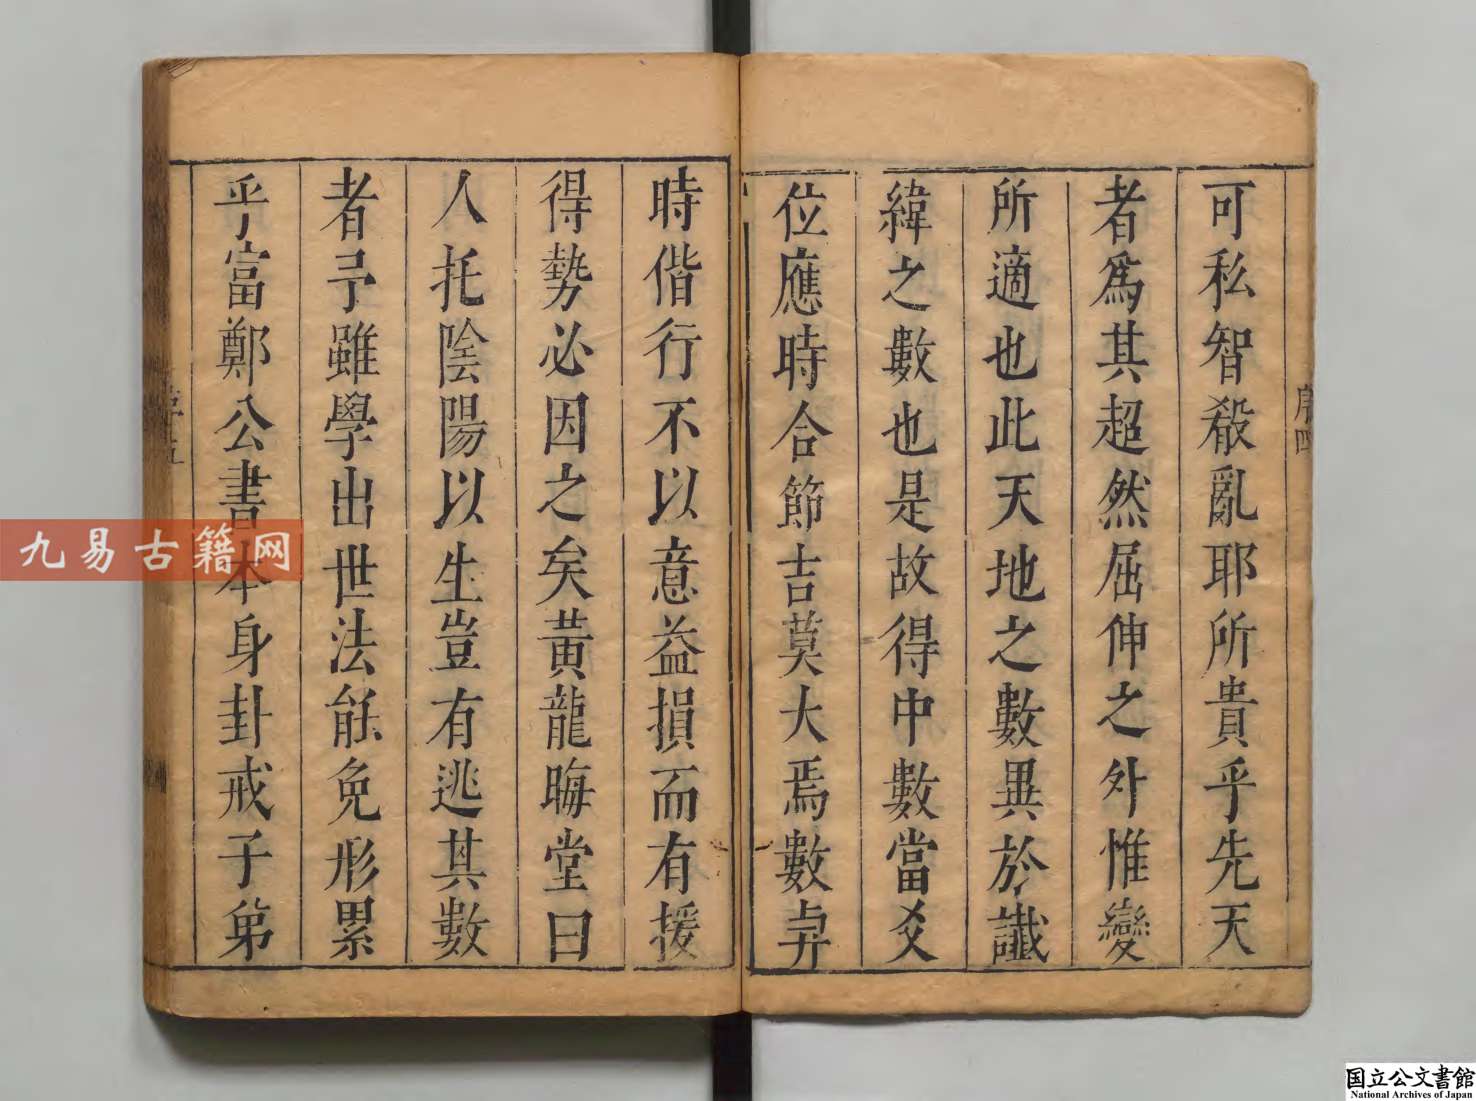 可私智殽亂耶所貴乎先天
者爲其超然屈伸之外惟變
所適也此天地之數異於讖
緯之數也是故得中數當爻
位應時合節吉莫大焉數与
時偕行不以意益損而有援
得勢必因之矣黃龍晦堂曰
人托陰陽以生豈有逃其數
者予雖學出世法能免形累
乎富鄭公書本身卦戒子弟
序四
九易古籍网
国立公文書館
National Archives of Japan